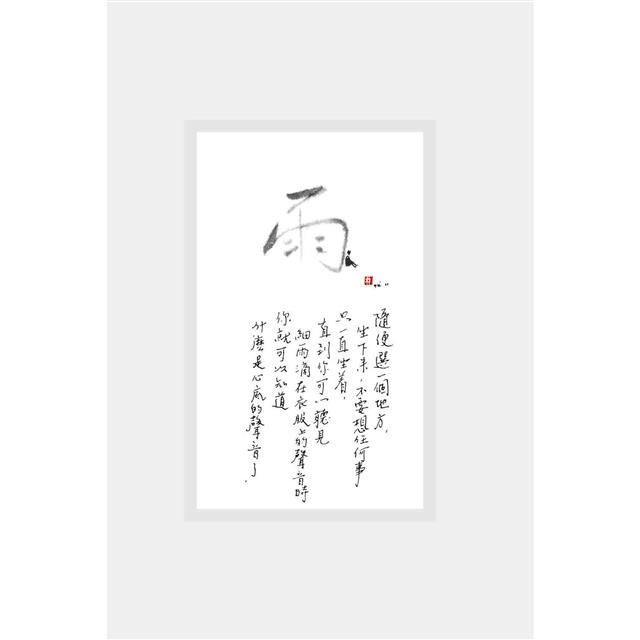 雨
隨便選一個地方，
坐下來，不要想任何事
只一直坐着，
直到你可以聽見
細雨滴在衣服上的聲音時
你就可以知道
什麼是心底的聲音了．